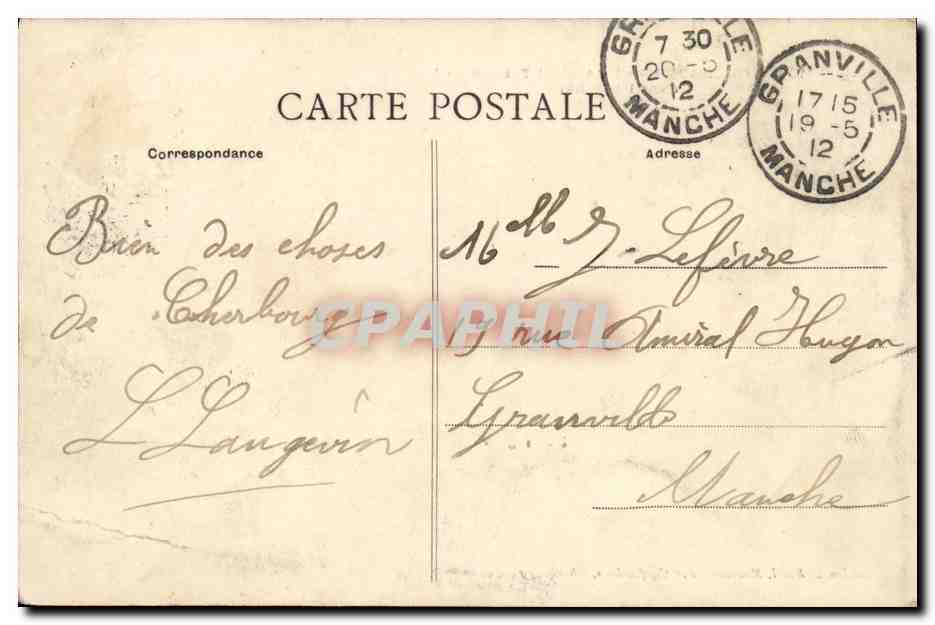 GRANVILLE
7 30
20 -5
12
MANCHE
GRANVILLE
17 15
19 -5
12
MANCHE
CARTE POSTALE
Correspondance
Adresse
Bien des choses
de Cherbourg
L Langevin
J. Lefèvre
rue Amiral Hugon
Granville
Manche
CPAPHIL